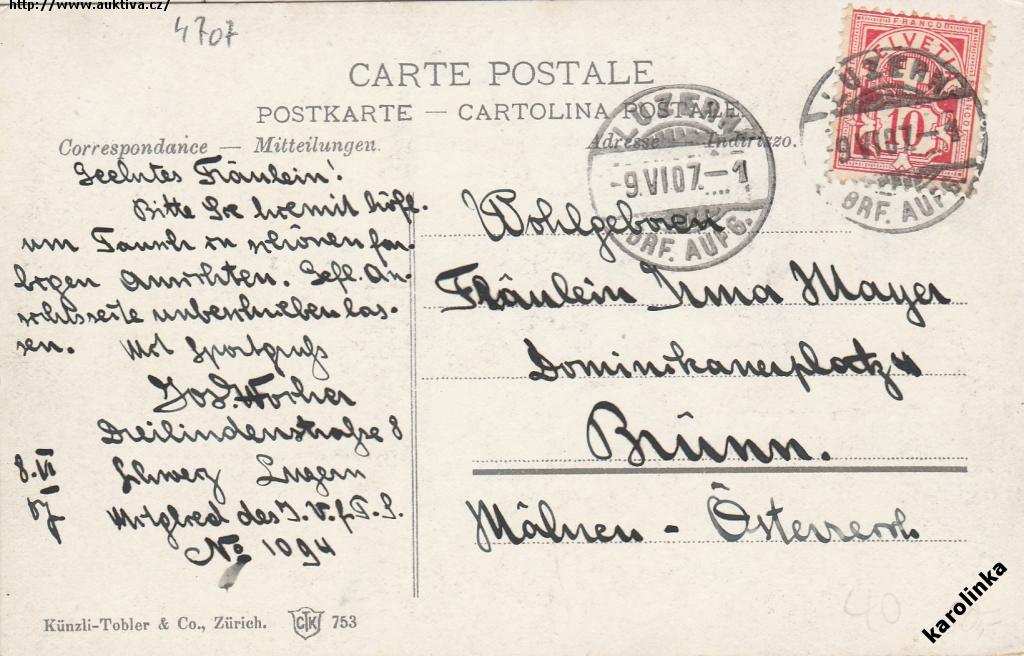 http://www.auktiva.cz/
4707
CARTE POSTALE
POSTKARTE — CARTOLINA POSTALE
Correspondance — Mitteilungen.
Adresse — Indirizzo.
FRANCO
HELVETIA
10
LUZERN
-9.VI.07.-1
BRF. AUFG.
LUZERN
-9.VI.07.-1
BRF. AUFG.
Geehrtes Fräulein!
Bitte Sie hiemit höfl.
um Tausch in schönen far-
bigen Ansichten. Gefl. An-
sichtsseite unbeschrieben las-
sen. Mit Sportgruß
Jos. Wocher
Dreilindenstraße 8
Schweiz Luzern
Mitglied des I.V.f.T.S.
No 1094
8.VI
07
Wohlgeboren
Fräulein Irma Mayer
Dominikanerplatz 4
Brünn.
Mähren - Österreich
Künzli-Tobler & Co., Zürich. CTK 753
40
karolinka